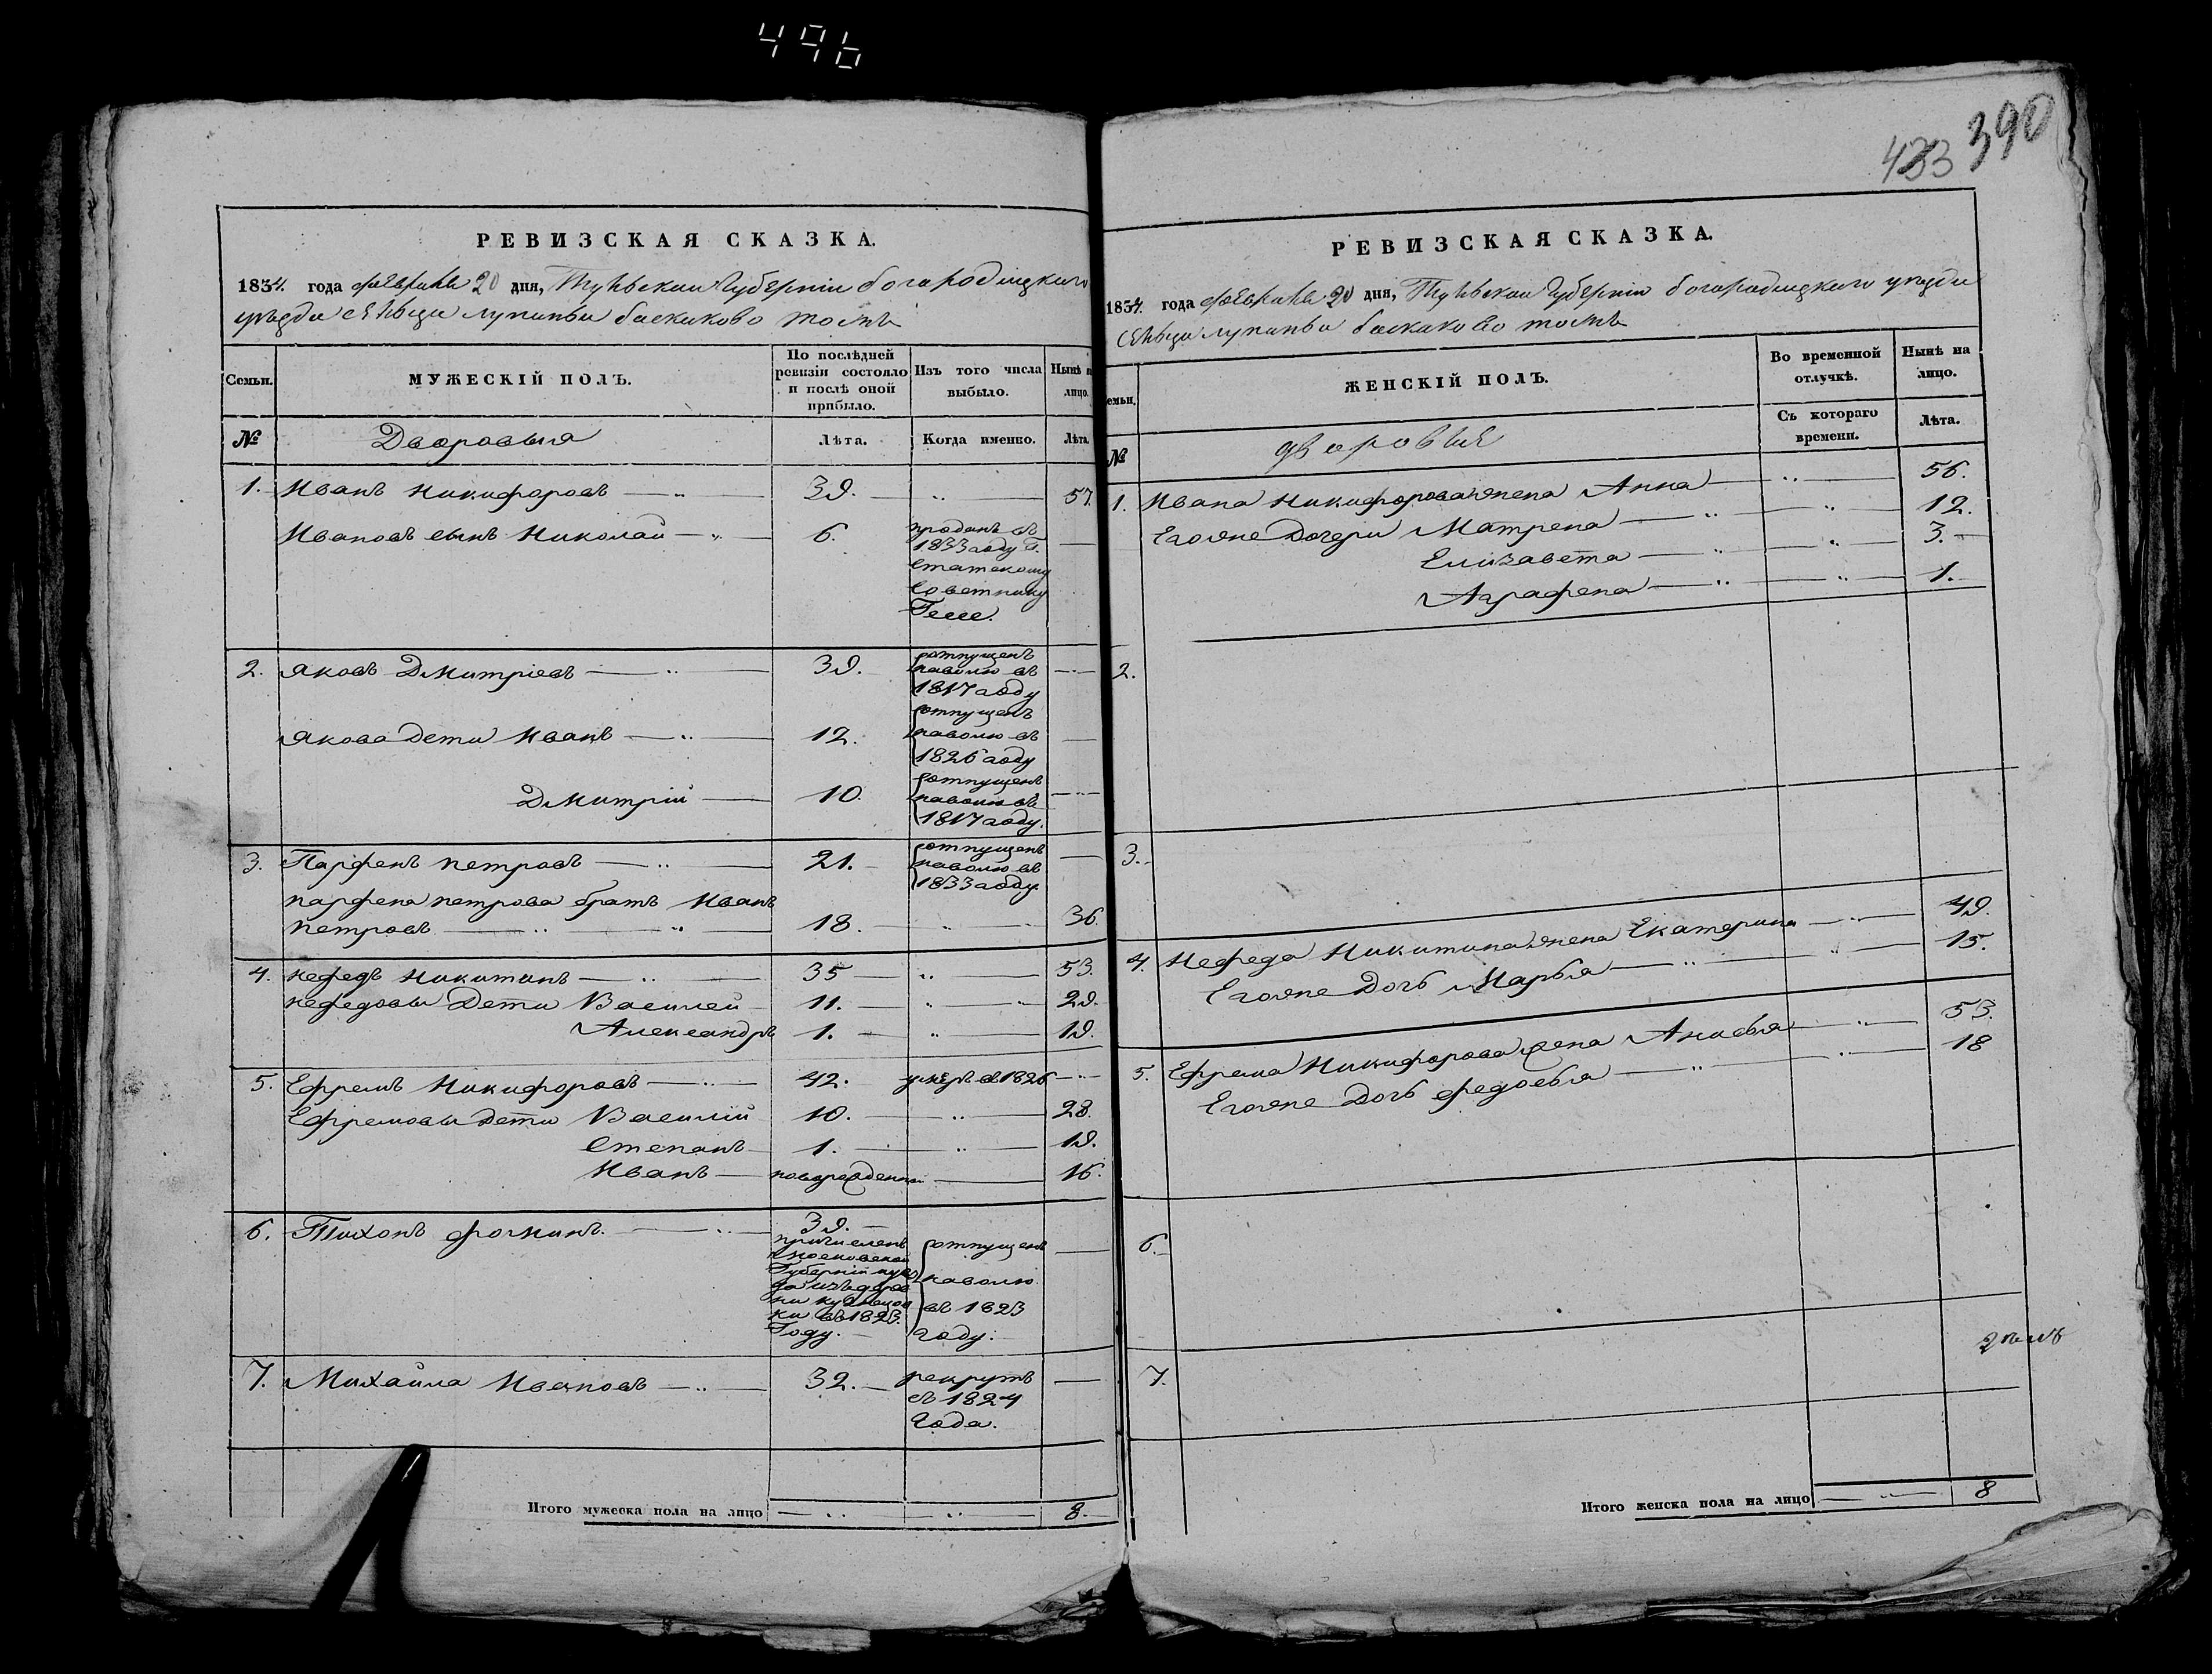 496
433 390
РЕВИЗСКАЯ СКАЗКА.
1834. года февраля 20 дня, Тульской Губерніи богородицкаго
уезда сельца лупиньи баскаково тожъ
Семьи.
МУЖЕСКІЙ ПОЛЪ.
По послѣдней ревизіи состояло и послѣ оной прибыло.
Изъ того числа выбыло.
Нынѣ на лицо.
№
Дворовыя
Лѣта.
Когда именно.
Лѣта.
1. Иванъ Никифоровъ — 39. — „ — 57.
Ивановъ сынъ Николай — 6. проданъ въ
1833 году Г.
Статскому
Советнику
Гессе.
2. Яковъ Дмитріевъ — 39. отпущенъ
наволю въ
1817 году
Якова дети Иванъ — 12. отпущенъ
наволю въ
1826 году
Дмитрій — 10. отпущенъ
наволю въ
1817 году.
3. Парфенъ петровъ — 21. отпущенъ
наволю въ
1833 году.
парфена петрова братъ Иванъ
петровъ — 18. — 36.
4. Нефедъ Никитинъ — 35 — 53.
Нефедовы Дети Василей 11. — 29.
Александръ 1. — 19.
5. Ефремъ Никифоровъ — 42. умеръ въ 1826
Ефремовы Дети Василій 10. — 28.
Степанъ 1. — 19.
Иванъ — новорожденны — 16.
6. Тихонъ фоминъ. — 39. —
причисленъ
Московской
Губерніи
ки въ 1823.
Году. —
отпущенъ
наволю
въ 1823
году.
7. Михайла Ивановъ — 32. — рекрутъ
съ 1824
Года.
Итого мужеска пола на лицо — „ — „ — 8.
РЕВИЗСКАЯ СКАЗКА.
1834. года февраля 20 дня, Тульской Губерніи богородицкаго уезда
сельца лупиньи баскаково тожъ
емьи.
ЖЕНСКІЙ ПОЛЪ.
Во временной отлучкѣ.
Нынѣ на лицо.
№
дворовые
Съ котораго времени.
Лѣта.
1. Ивана Никифорова жена Анна — 56.
Егожие Дочери Матрена — 12.
Елизавета — 3.
Аграфена — 1.
2.
3.
4. Нефеда Никитина жена Екатерина — 49.
Егожие Дочь Марья — 15.
5. Ефрема Никифорова жена — 53.
Егожие Дочь федосья — 18
6.
7.
Итого женска пола на лицо — „ — 8